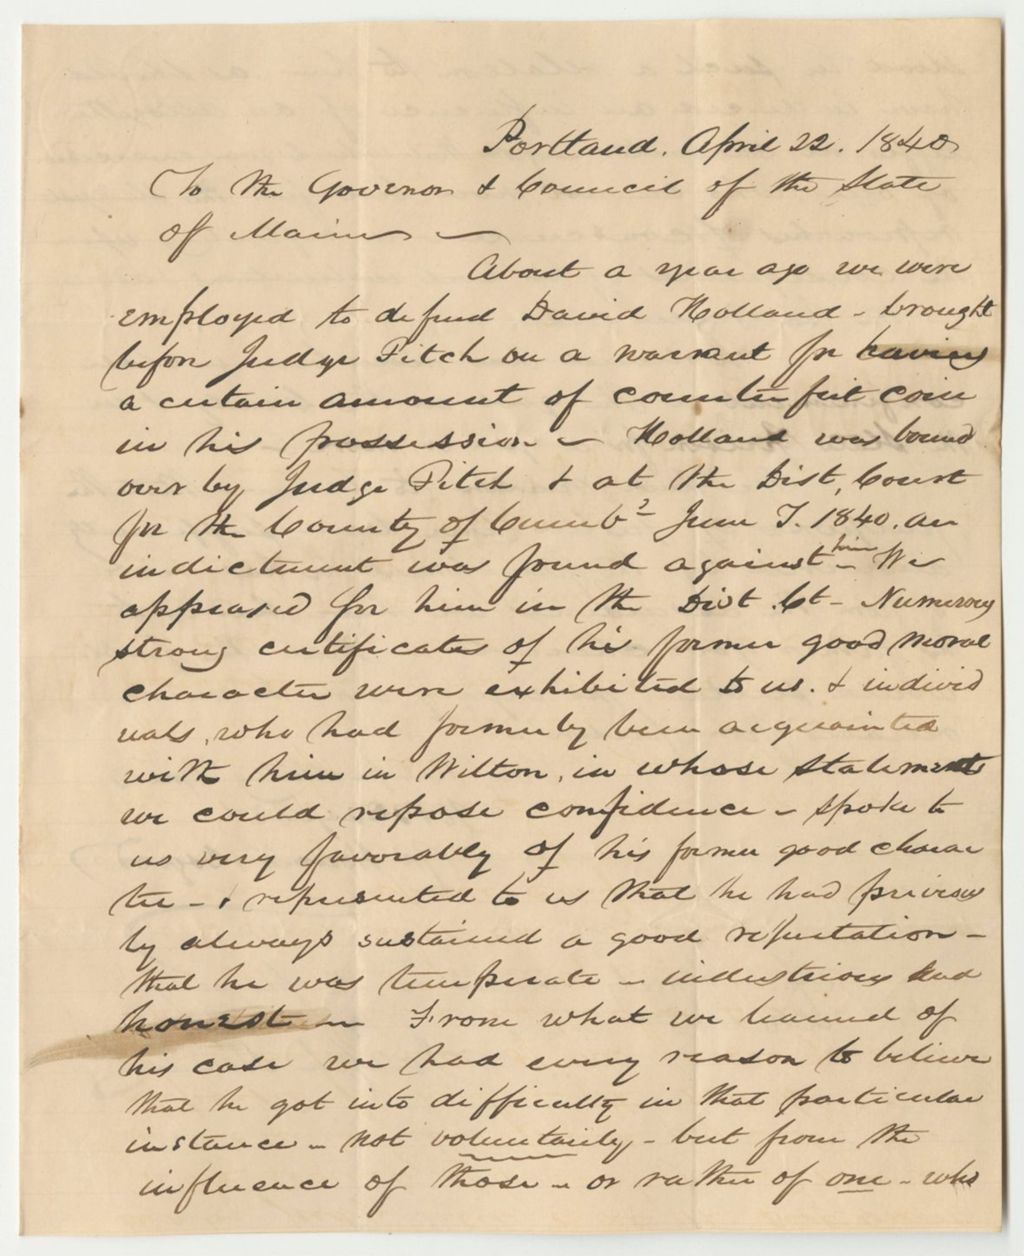 Portland. April 22. 1840
To the Governor & Council of the State
of Maine —
About a year ago we were
employed to defend David Holland - brought
before Judge Fitch on a warrant for having
a certain amount of counterfeit coin
in his possession - Holland was bound
over by Judge Fitch & at the Dist. Court
for the County of Cumbd June T. 1840. an
indictment was found against him - We
appeared for him in the Dist. Ct - Numerous
strong certificates of his former good moral
character were exhibited to us. & individ
uals, who had formerly been acquainted
with him in Wilton, in whose statements
we could repose confidence - spoke to
us very favorably of his former good charac
ter - & represented to us that he had previous
ly always sustained a good reputation -
that he was temperate - industrious and
honest - From what we learned of
his case we had every reason to believe
that he got into difficulty in that particular
instance - not voluntarily - but from the
influence of those - or rather of one - who